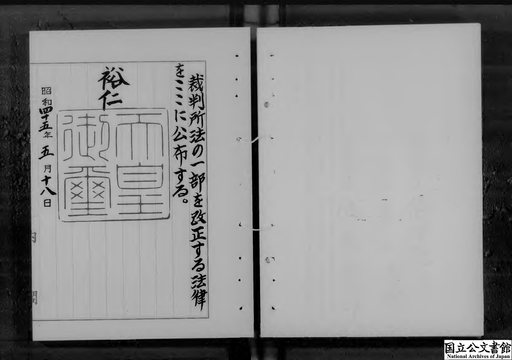 裁判所法の一部を改正する法律
をここに公布する。
裕仁
天皇
御璽
昭和四十五年五月十八日
内
閣
国立公文書館
National Archives of Japan